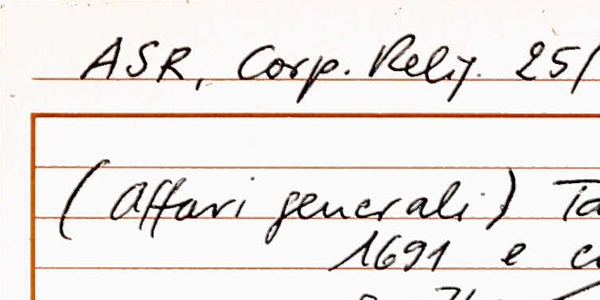 ASR, Corp. Relig. 25/
(Affari generali) Ta
1691 e c